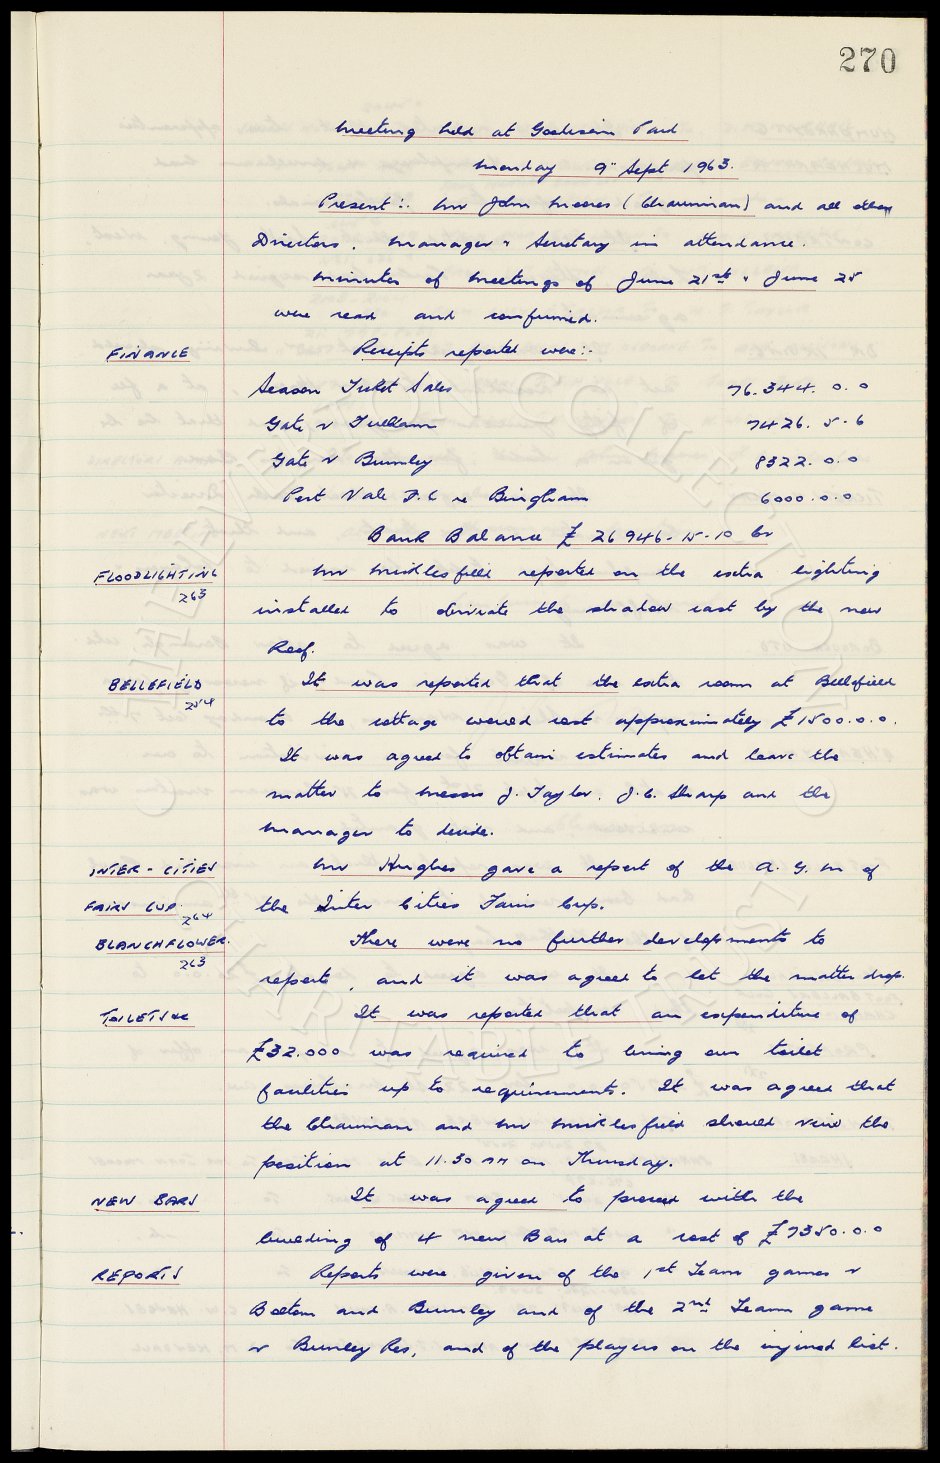 270
Meeting held at Goodison Park
Monday 9" Sept 1963.
Present:- Mr John Moores (Chairman) and all other
Directors. Manager & Secretary in attendance.
Minutes of Meetings of June 21st & June 25
were read and confirmed.
FINANCE Receipts reported were:-
Season Ticket Sales 76.344. 0. 0
Gate v Fulham 7426. 5. 6
Gate v Burnley 8322. 0. 0
Port Vale F.C re Bingham 6000. 0. 0
Bank Balance £ 26946-15-10 Cr
FLOODLIGHTING Mr Micklesfield reported on the extra lighting
263
installed to obviate the shadow cast by the new
Roof.
BELLEFIELD It was reported that the extra room at Bellefield
254
to the cottage would cost approximately £1500.0.0.
It was agreed to obtain estimates and leave the
matter to Messrs J. Taylor. J.C. Sharp and the
Manager to decide.
INTER-CITIES Mr Hughes gave a report of the A.G.M of
FAIRS CUP. the Inter Cities Fairs Cup.
264
BLANCHFLOWER. There were no further developments to
263
report, and it was agreed to let the matter drop.
TOILETS &c It was reported that an expenditure of
£32.000 was required to bring our toilet
facilities up to requirements. It was agreed that
the Chairman and Mr Micklesfield should view the
position at 11.30 AM on Thursday.
NEW BARS It was agreed to proceed with the
building of 4 new Bars at a cost of £7350.0.0
REPORTS Reports were given of the 1st Team games v
Bolton and Burnley and of the 2nd Team game
v Burnley Res, and of the players on the injured list.
THE EVERTON COLLECTION
CHARITABLE TRUST